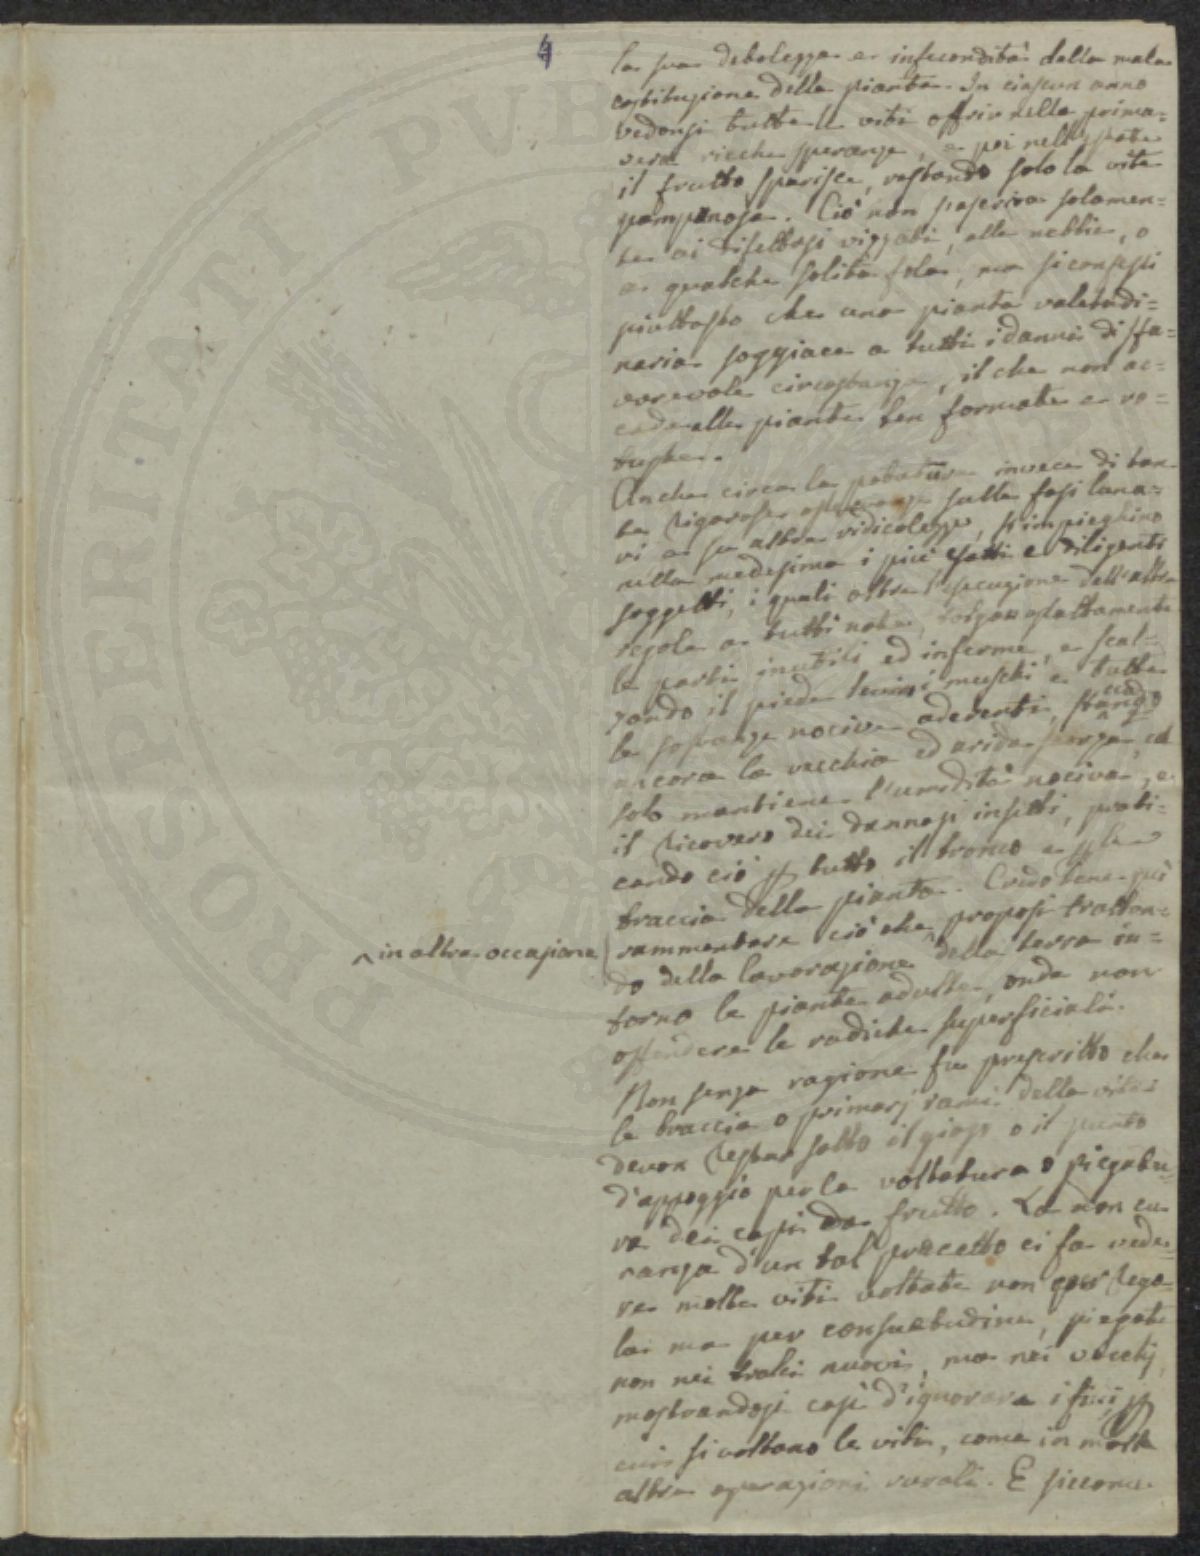 4
la sua debolezza e infecondità dalla mala
costituzione della pianta. In ciascun anno
vedonsi tutte le viti offrir nella prima=
vera ricche speranze, e poi nell'estate
il frutto sparisce, restando solo la vite
pampanosa. Ciò non s'ascriva solamen=
te ai difettosi vizzati, alle nebbie, o
a qualche solita fola, ma si confessi
piuttosto che una pianta valetudi=
naria soggiace a tutti i danni di sfa=
vorevole circostanza, il che non ac=
cade alle piante ben formate e ro=
buste.
Anche circa la potatura invece di tan
te rigorose osservanze sulle fasi luna=
ri e su altre ridicolezze, s'impieghino
nella medesima i più esatti e diligenti
soggetti, i quali oltre l'esecuzione dell'altre
regole a tutti note, tolgano esattamente
le parti inutili ed inferme, e scal=
zando il piede levino i muschi e tutte
le sostanze nocive aderenti,
ancora la vecchia ed arida scorza, che
solo mantiene l'umidità nociva, e
il ricovero dei dannosi insetti, prati=
cando ciò p tutto il tronco e p le
braccia della pianta. Credo bene poi
rammentare ciò che ^ proposi trattan=
^ in altra occasione
do della lavorazione della terra in=
torno le piante adulte, onde non
offendere le radiche superficiali.
Non senza ragione fu prescritto che
le braccia o primarj rami della vite
devon restar sotto il giogo o il punto
d'appoggio per la voltatura o piegatu=
ra dei capi da frutto. La non cu
ranza d'un tal precetto ci fa vede=
re molte viti voltate non per rego=
la ma per consuetudine, piegate
non nei tralci nuovi, ma nei vecchj,
mostrandosi così d'ignorare i fini p
cui si voltano le viti, come in molte
altre operazioni rurali. E siccome
PROSPERITATI PVB